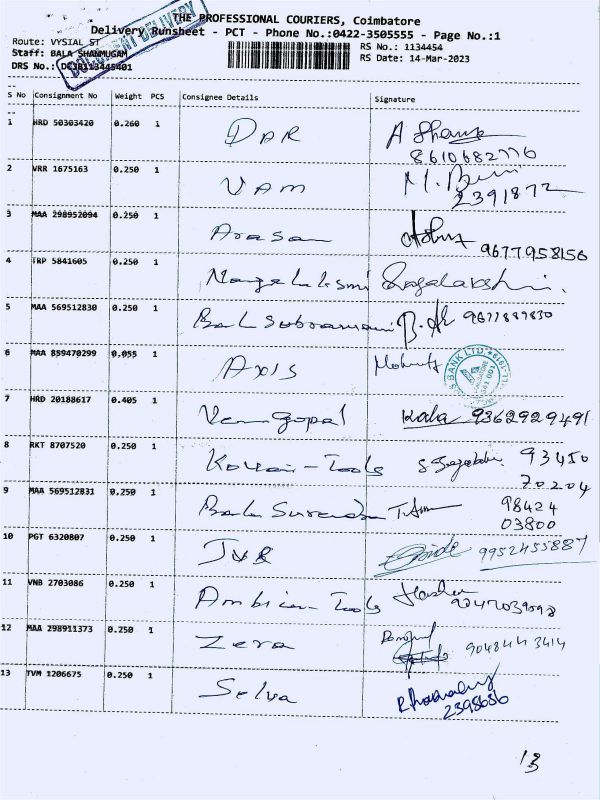 THE PROFESSIONAL COURIERS, Coimbatore
Delivery Runsheet - PCT - Phone No.:0422-3505555 - Page No.:1
Route: VYSIAL ST
RS No.: 1134454
Staff: BALA SHANMUGAM
RS Date: 14-Mar-2023
DRS No.:
DOCUMENT DELIVERY
S No Consignment No Weight PCS Consignee Details Signature
1 HRD 50303420 0.260 1 DAR
8610682776
2 VRR 1675163 0.250 1 VAM
2391872
3 MAA 298952094 0.250 1 Arasan 9677958156
4 TRP 5841605 0.250 1 Nagalakshmi
5 MAA 569512830 0.250 1 Bala Subramani
6 MAA 859470299 0.055 1 AXIS
BANK LTD
7 HRD 20188617 0.405 1 Venugopal Kala 9362929491
8 RKT 8707520 0.250 1 Kovai-Tools 93450
70204
9 MAA 569512831 0.250 1 Bala Surendra 98424
03800
10 PGT 6320807 0.250 1 JVR 9952455887
11 VNB 2703086 0.250 1 -Tools
12 MAA 298911373 0.250 1 Zera 9048443414
13 TVM 1206675 0.250 1 Selva
2395686
13